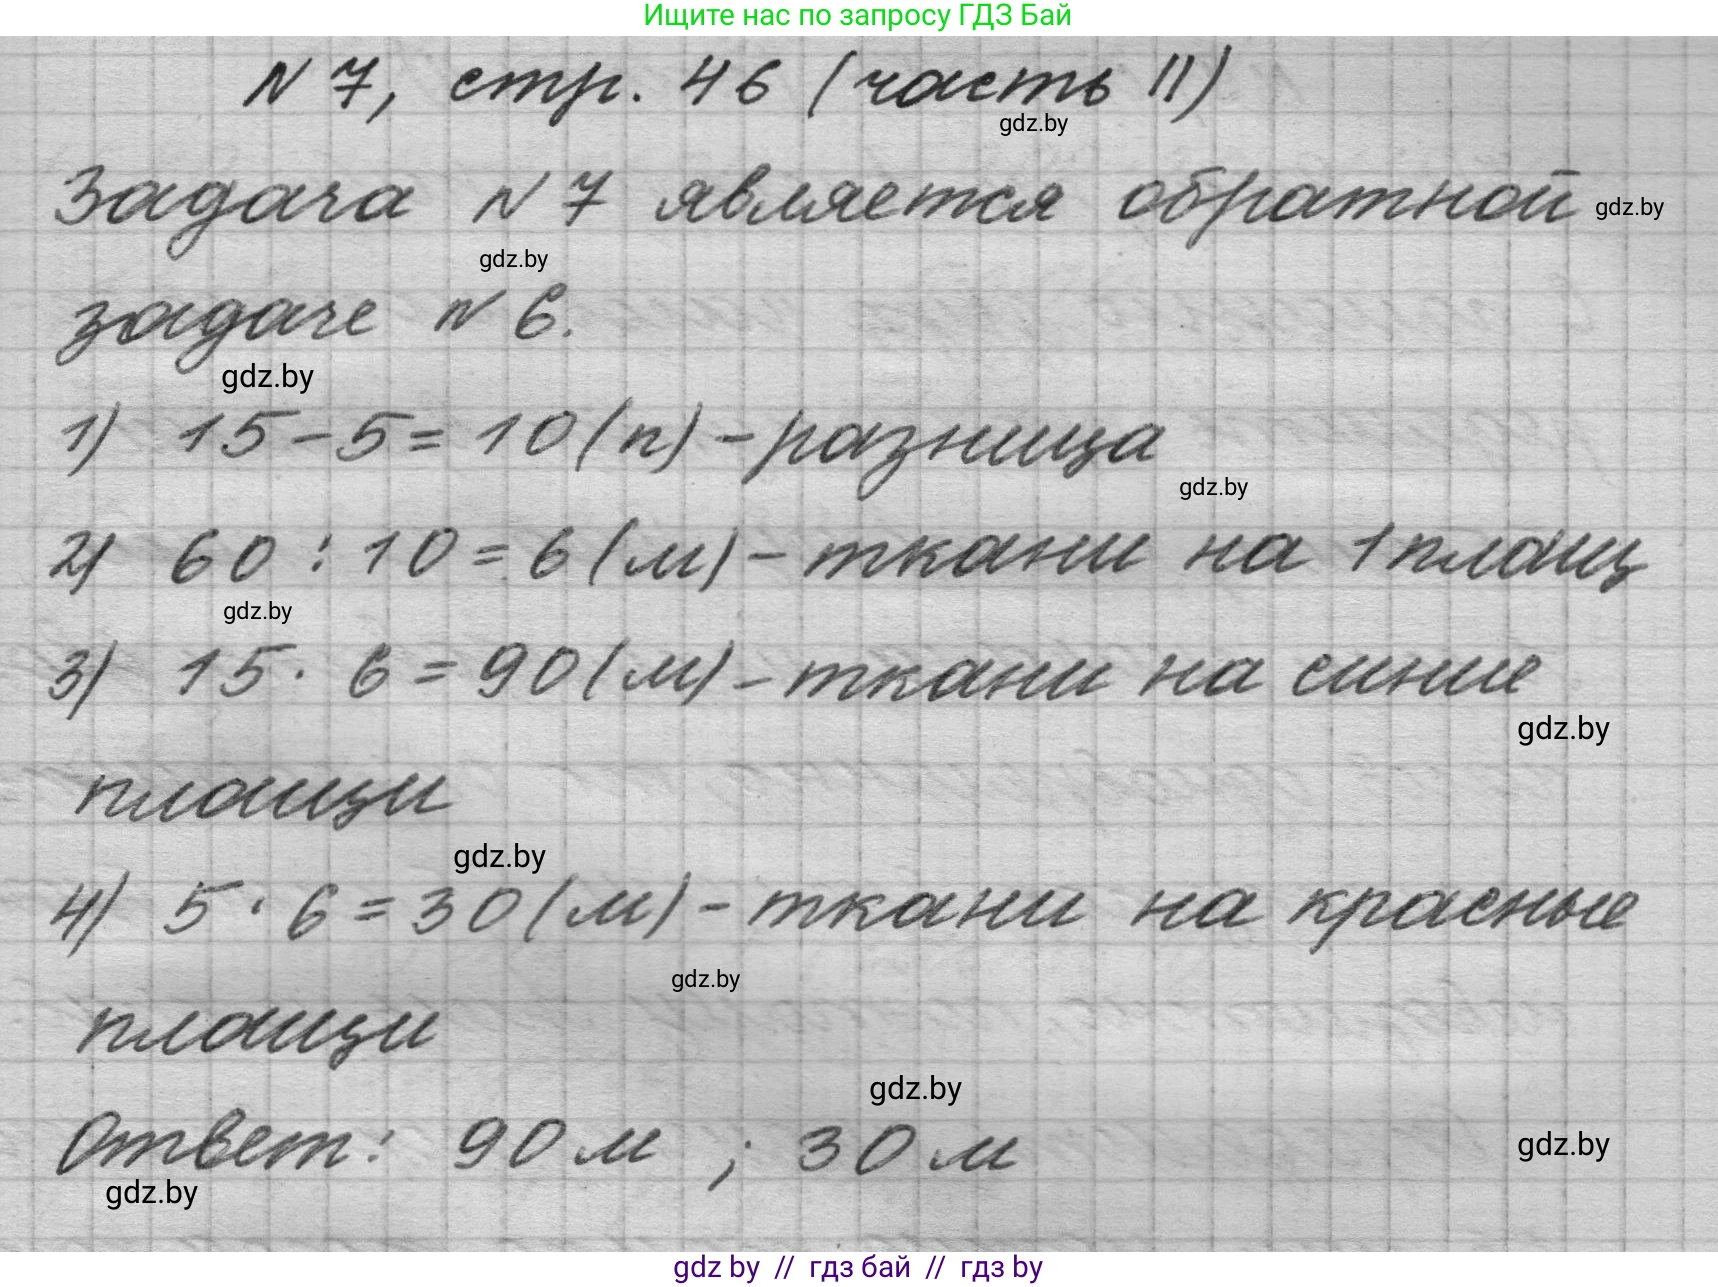 Ищите нас по запросу ГДЗ Бай
N 7, стр. 46 (часть II)
gdz.by
Задача N 7 является обратной
gdz.by
gdz.by
задаче N 6.
gdz.by
1) 15 - 5 = 10 (п) - разница
gdz.by
2) 60 : 10 = 6 (м) - ткани на 1 плащ
gdz.by
3) 15 · 6 = 90 (м) - ткани на синие
gdz.by
плащи
gdz.by
4) 5 · 6 = 30 (м) - ткани на красные
gdz.by
плащи
gdz.by
Ответ: 90 м ; 30 м
gdz.by
gdz.by
gdz by // гдз бай // гдз by